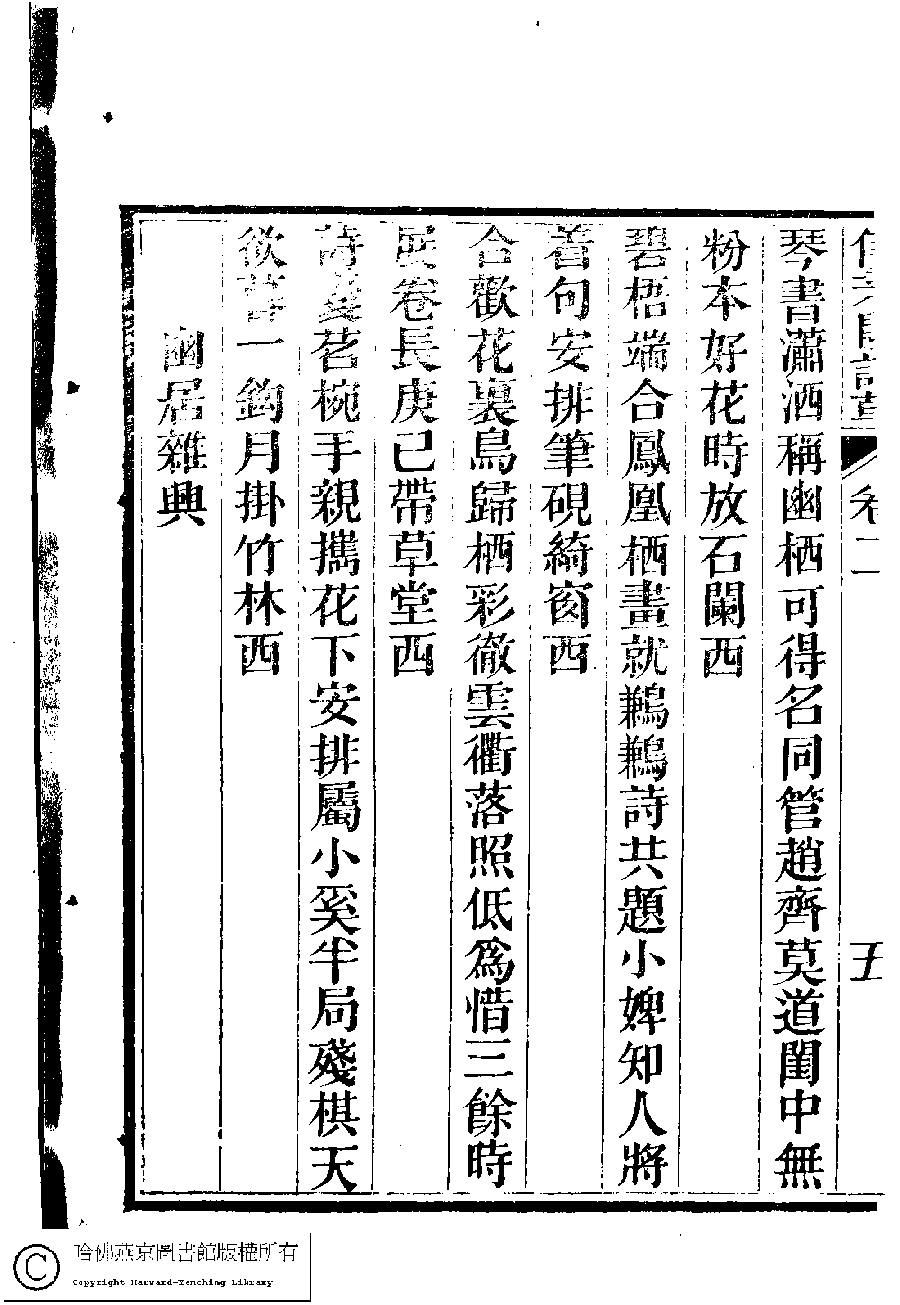 卷二
五
琴書瀟洒稱幽栖可得名同管趙齊莫道閨中無
粉本好花時放石闌西
碧梧端合鳳凰栖畫就鶼鶼詩共題小婢知人將
著句安排筆硯綺窗西
合歡花裏鳥歸栖彩徹雲衢落照低為惜三餘時
展卷長庚已帶草堂西
詩囊茗椀手親攜花下安排屬小奚半局殘棋天
欲暮一鉤月掛竹林西
幽居雜興
哈佛燕京圖書館版權所有
Copyright Harvard-Yenching Library